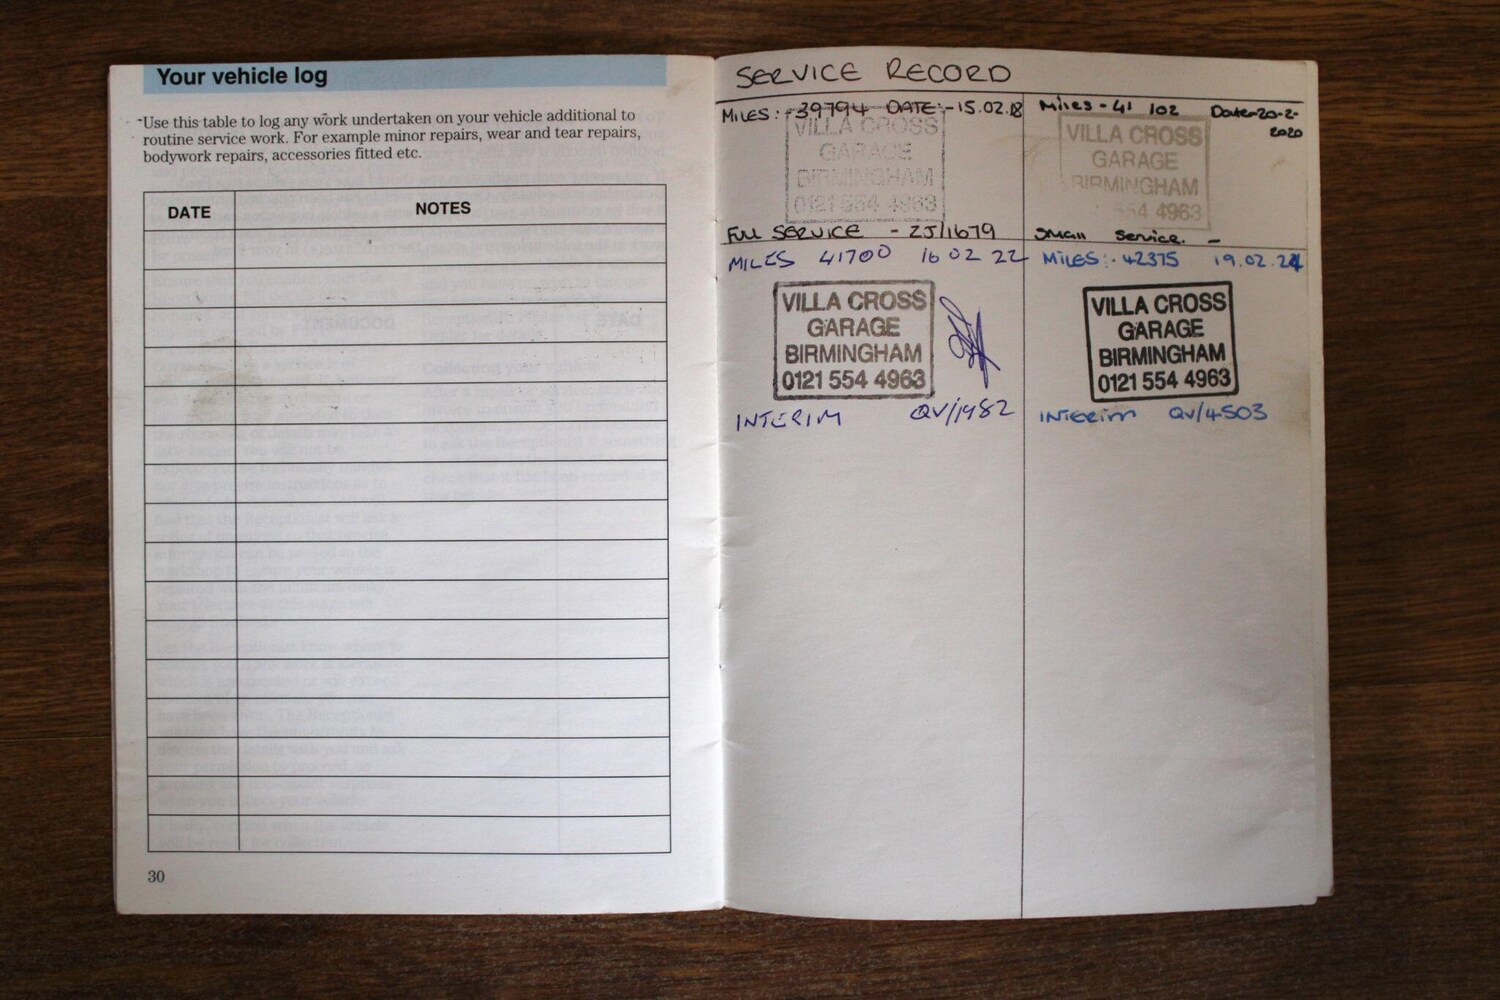 Your vehicle log
Use this table to log any work undertaken on your vehicle additional to
routine service work. For example minor repairs, wear and tear repairs,
bodywork repairs, accessories fitted etc.
DATE NOTES
30
SERVICE RECORD
MILES :- 39794 DATE:- 15.02.18
VILLA CROSS
GARAGE
BIRMINGHAM
0121 554 4963
FULL SERVICE - ZJ/1679
Miles - 41 102 Date-20-2-
2020
VILLA CROSS
GARAGE
BIRMINGHAM
554 4963
Small Service. -
MILES 41700 16 02 22
VILLA CROSS
GARAGE
BIRMINGHAM
0121 554 4963
INTERIM QV/1982
MILES:- 42375 19.02.24
VILLA CROSS
GARAGE
BIRMINGHAM
0121 554 4963
INTERIM QV/4503